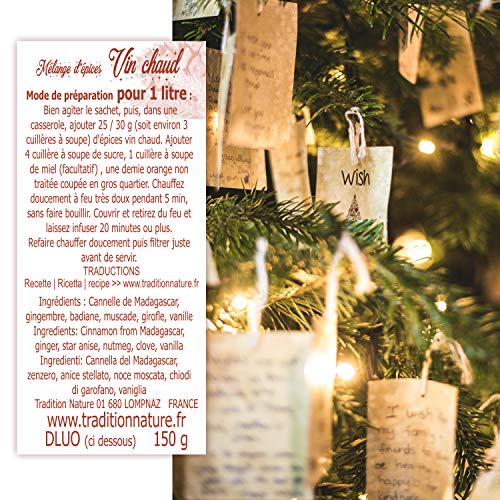 Mélange d'épices Vin chaud
Mode de préparation pour 1 litre :
Bien agiter le sachet, puis, dans une
casserole, ajouter 25 / 30 g (soit environ 3
cuillères à soupe) d'épices vin chaud. Ajouter
4 cuillère à soupe de sucre, 1 cuillère à soupe
de miel (facultatif) , une demie orange non
traitée coupée en gros quartier. Chauffez
doucement à feu très doux pendant 5 min,
sans faire bouillir. Couvrir et retirez du feu et
laissez infuser 20 minutes ou plus.
Refaire chauffer doucement puis filtrer juste
avant de servir.
TRADUCTIONS
Recette | Ricetta | recipe >> www.traditionnature.fr
Ingrédients : Cannelle de Madagascar,
gingembre, badiane, muscade, girofle, vanille
Ingredients: Cinnamon from Madagascar,
ginger, star anise, nutmeg, clove, vanilla
Ingredienti: Cannella del Madagascar,
zenzero, anice stellato, noce moscata, chiodi
di garofano, vaniglia
Tradition Nature 01 680 LOMPNAZ FRANCE
www.traditionnature.fr
DLUO (ci dessous) 150 g
Wish
I wish
my family
friends to
be healthy
happy